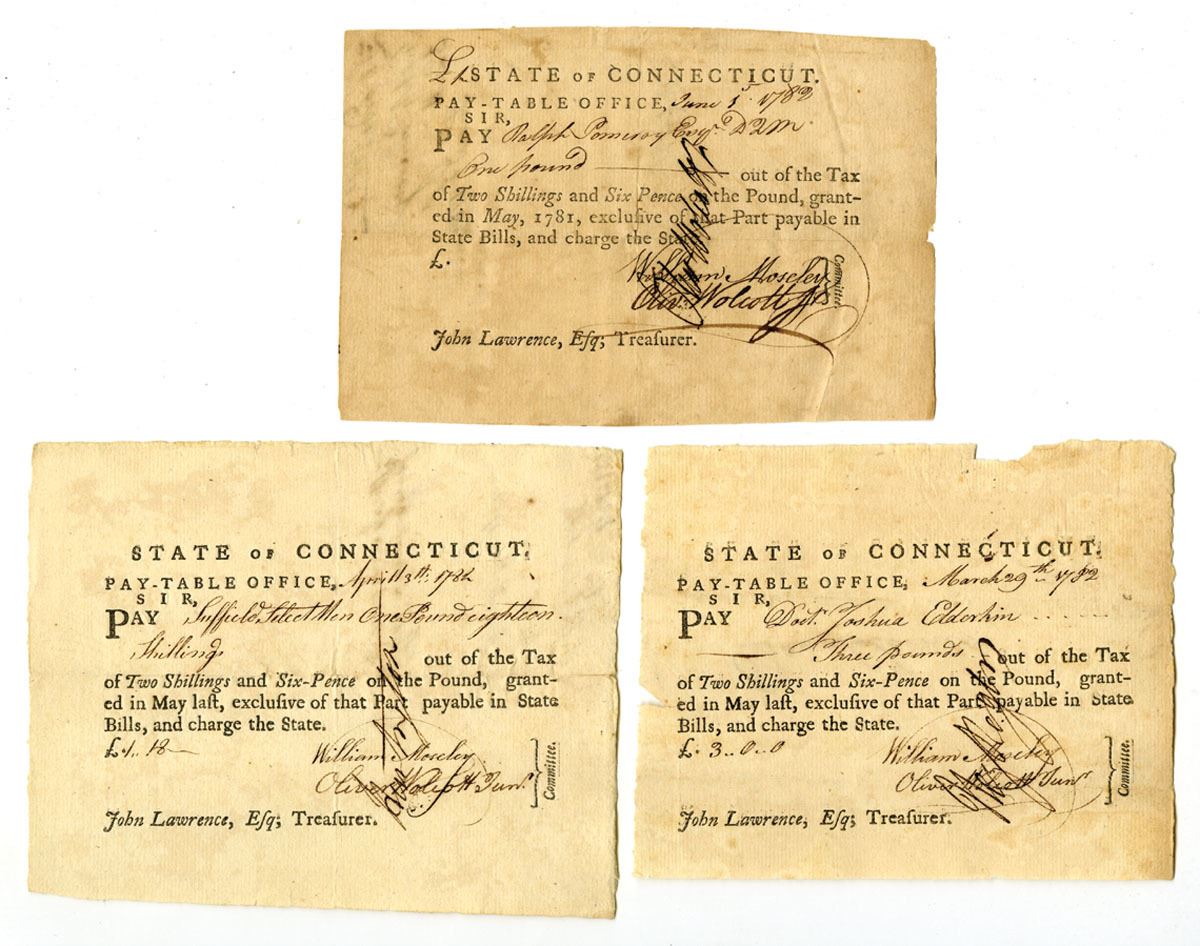 STATE OF CONNECTICUT.
PAY-TABLE OFFICE, June 1st 1782
SIR,
PAY Ralph Pomeroy Esqr. D2M
One pound out of the Tax
of Two Shillings and Six Pence on the Pound, grant-
ed in May, 1781, exclusive of that Part payable in
State Bills, and charge the State.
£.
William Moseley
Olivr. Wolcott Jr
Committee.
John Lawrence, Eſq; Treaſurer.
STATE OF CONNECTICUT.
PAY-TABLE OFFICE, April 13th. 1782
SIR,
PAY Suffield Select Men One Pound eighteen
Shillings out of the Tax
of Two Shillings and Six-Pence on the Pound, grant-
ed in May laſt, exclusive of that Part payable in State
Bills, and charge the State.
£.1..18—
William Moseley
Oliver Wolcott Junr.
Committee.
John Lawrence, Eſq; Treaſurer.
STATE OF CONNECTICUT.
PAY-TABLE OFFICE, March 29th 1782
SIR,
PAY Doct. Joshua Elderkin
Three pounds out of the Tax
of Two Shillings and Six-Pence on the Pound, grant-
ed in May laſt, exclusive of that Part payable in State
Bills, and charge the State.
£.3..0..0
William Moseley
Oliver Wolcott Junr
Committee.
John Lawrence, Eſq; Treaſurer.